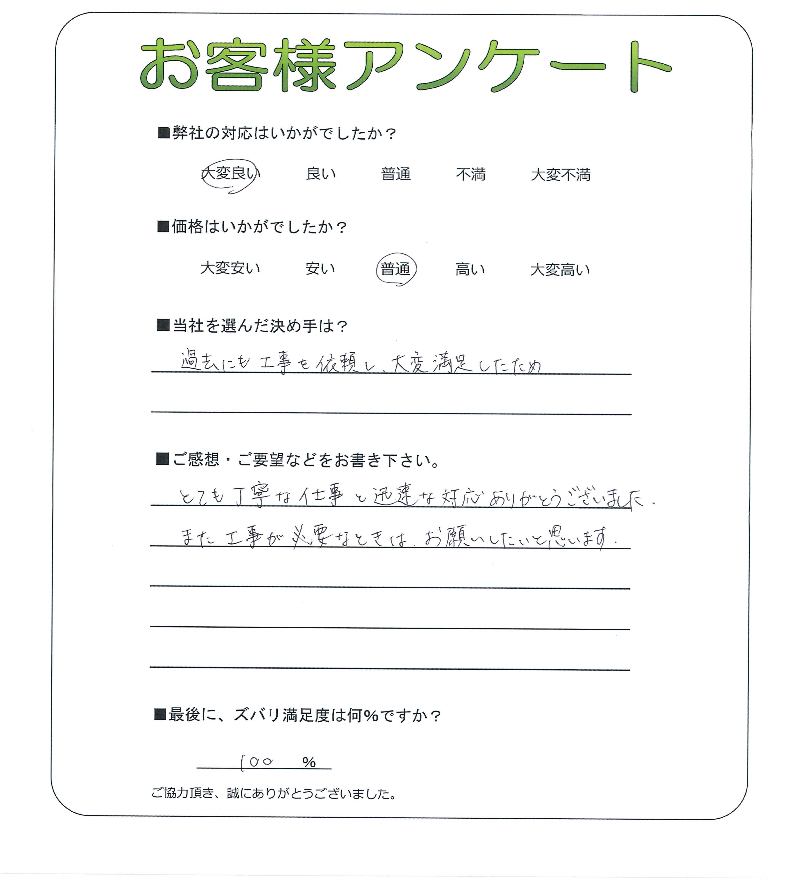 お客様アンケート
■弊社の対応はいかがでしたか？
大変良い 良い 普通 不満 大変不満
■価格はいかがでしたか？
大変安い 安い 普通 高い 大変高い
■当社を選んだ決め手は？
過去にも工事を依頼し、大変満足したため
■ご感想・ご要望などをお書き下さい。
とても丁寧な仕事と迅速な対応ありがとうございました.
また工事が必要なときは、お願いしたいと思います.
■最後に、ズバリ満足度は何%ですか？
100 %
ご協力頂き、誠にありがとうございました。